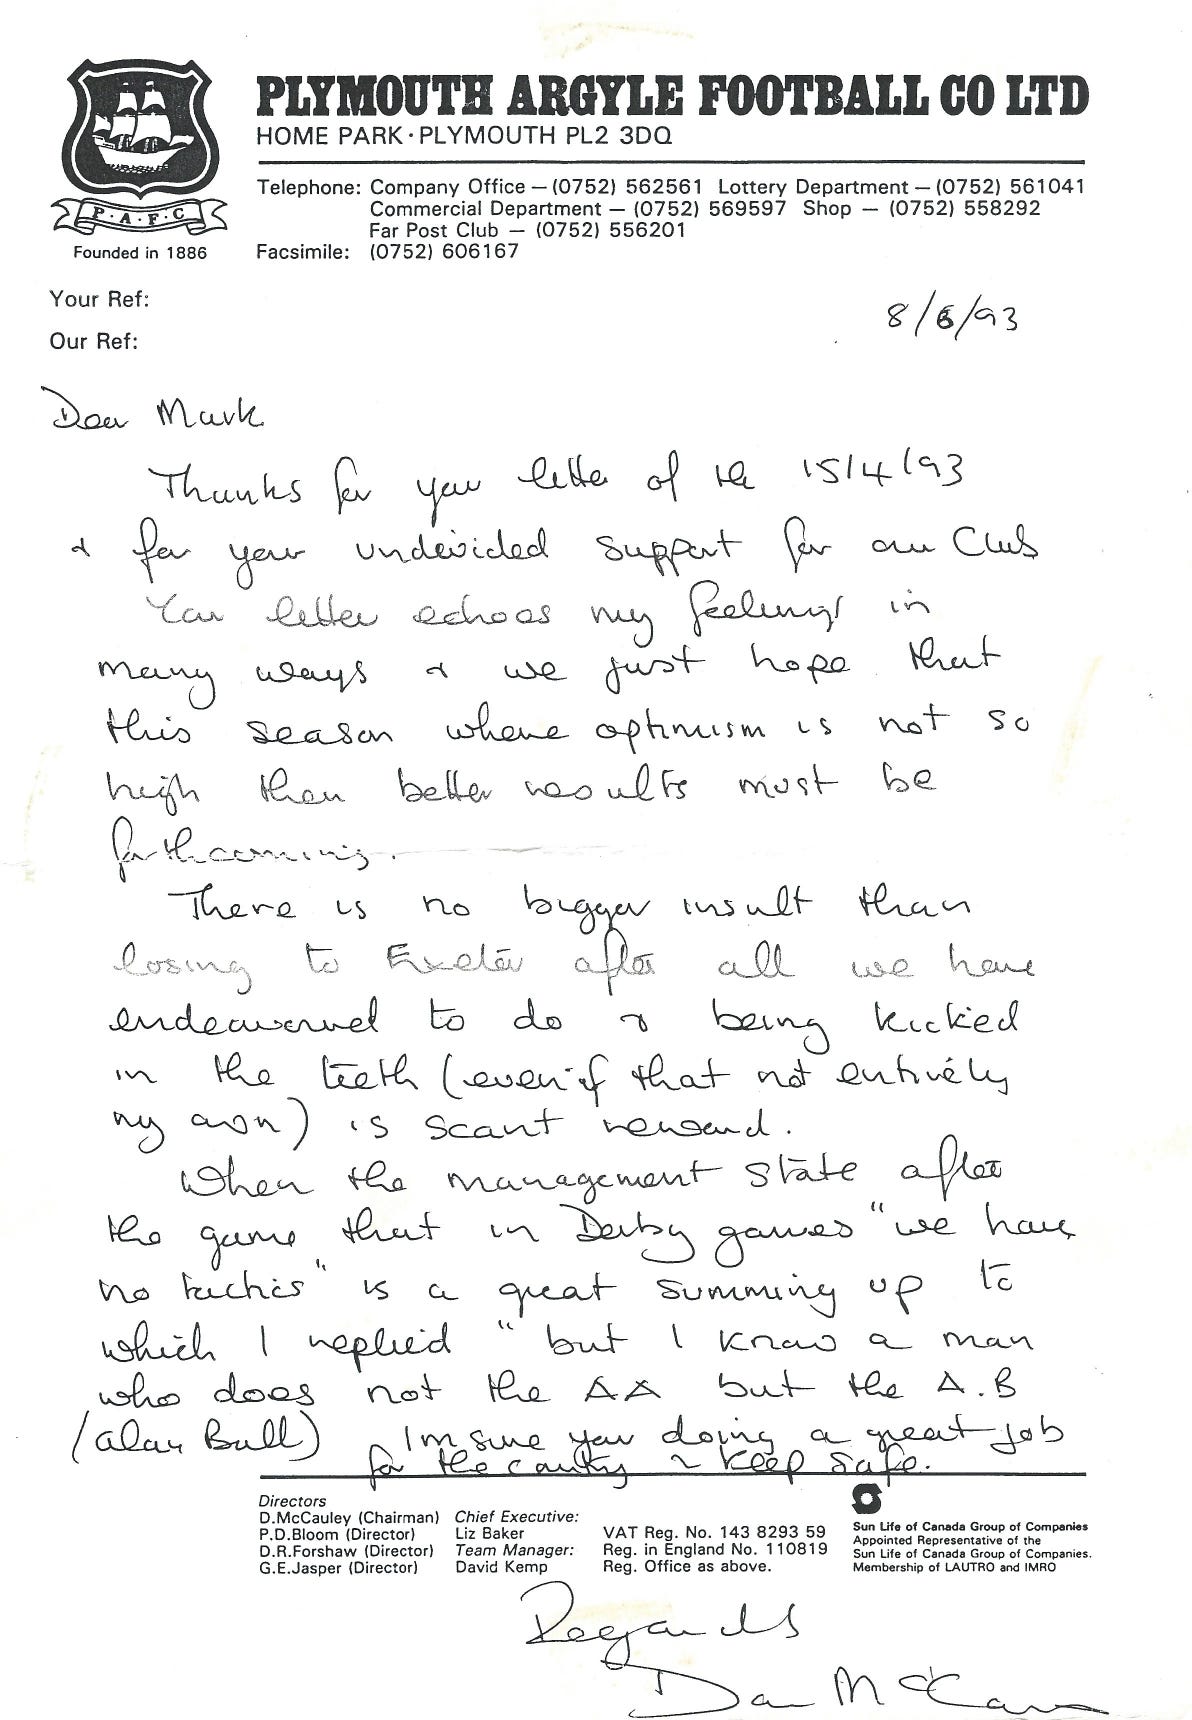 PLYMOUTH ARGYLE FOOTBALL CO LTD
HOME PARK · PLYMOUTH PL2 3DQ
Telephone: Company Office — (0752) 562561 Lottery Department — (0752) 561041
Commercial Department — (0752) 569597 Shop — (0752) 558292
Far Post Club — (0752) 556201
Facsimile: (0752) 606167
P·A·F·C
Founded in 1886
Your Ref:
Our Ref:
8/6/93
Dear Mark
Thanks for your letter of the 15/4/93
& for your undivided support for our Club
Your letter echoes my feelings in
many ways & we just hope that
this season where optimism is not so
high then better results must be
forthcoming.
There is no bigger insult than
losing to Exeter after all we have
endeavoured to do & being kicked
in the teeth (even if that not entirely
my own) is scant reward.
When the management state after
the game that in Derby games "we have
no tactics" is a great summing up to
which I replied "but I know a man
who does not the AA but the A.B
(Alan Ball) I'm sure your doing a great job
for the country & keep safe.
Directors
D.McCauley (Chairman)
P.D.Bloom (Director)
D.R.Forshaw (Director)
G.E.Jasper (Director)
Chief Executive:
Liz Baker
Team Manager:
David Kemp
VAT Reg. No. 143 8293 59
Reg. in England No. 110819
Reg. Office as above.
Sun Life of Canada Group of Companies
Appointed Representative of the
Sun Life of Canada Group of Companies.
Membership of LAUTRO and IMRO
Regards
Dan McCauley